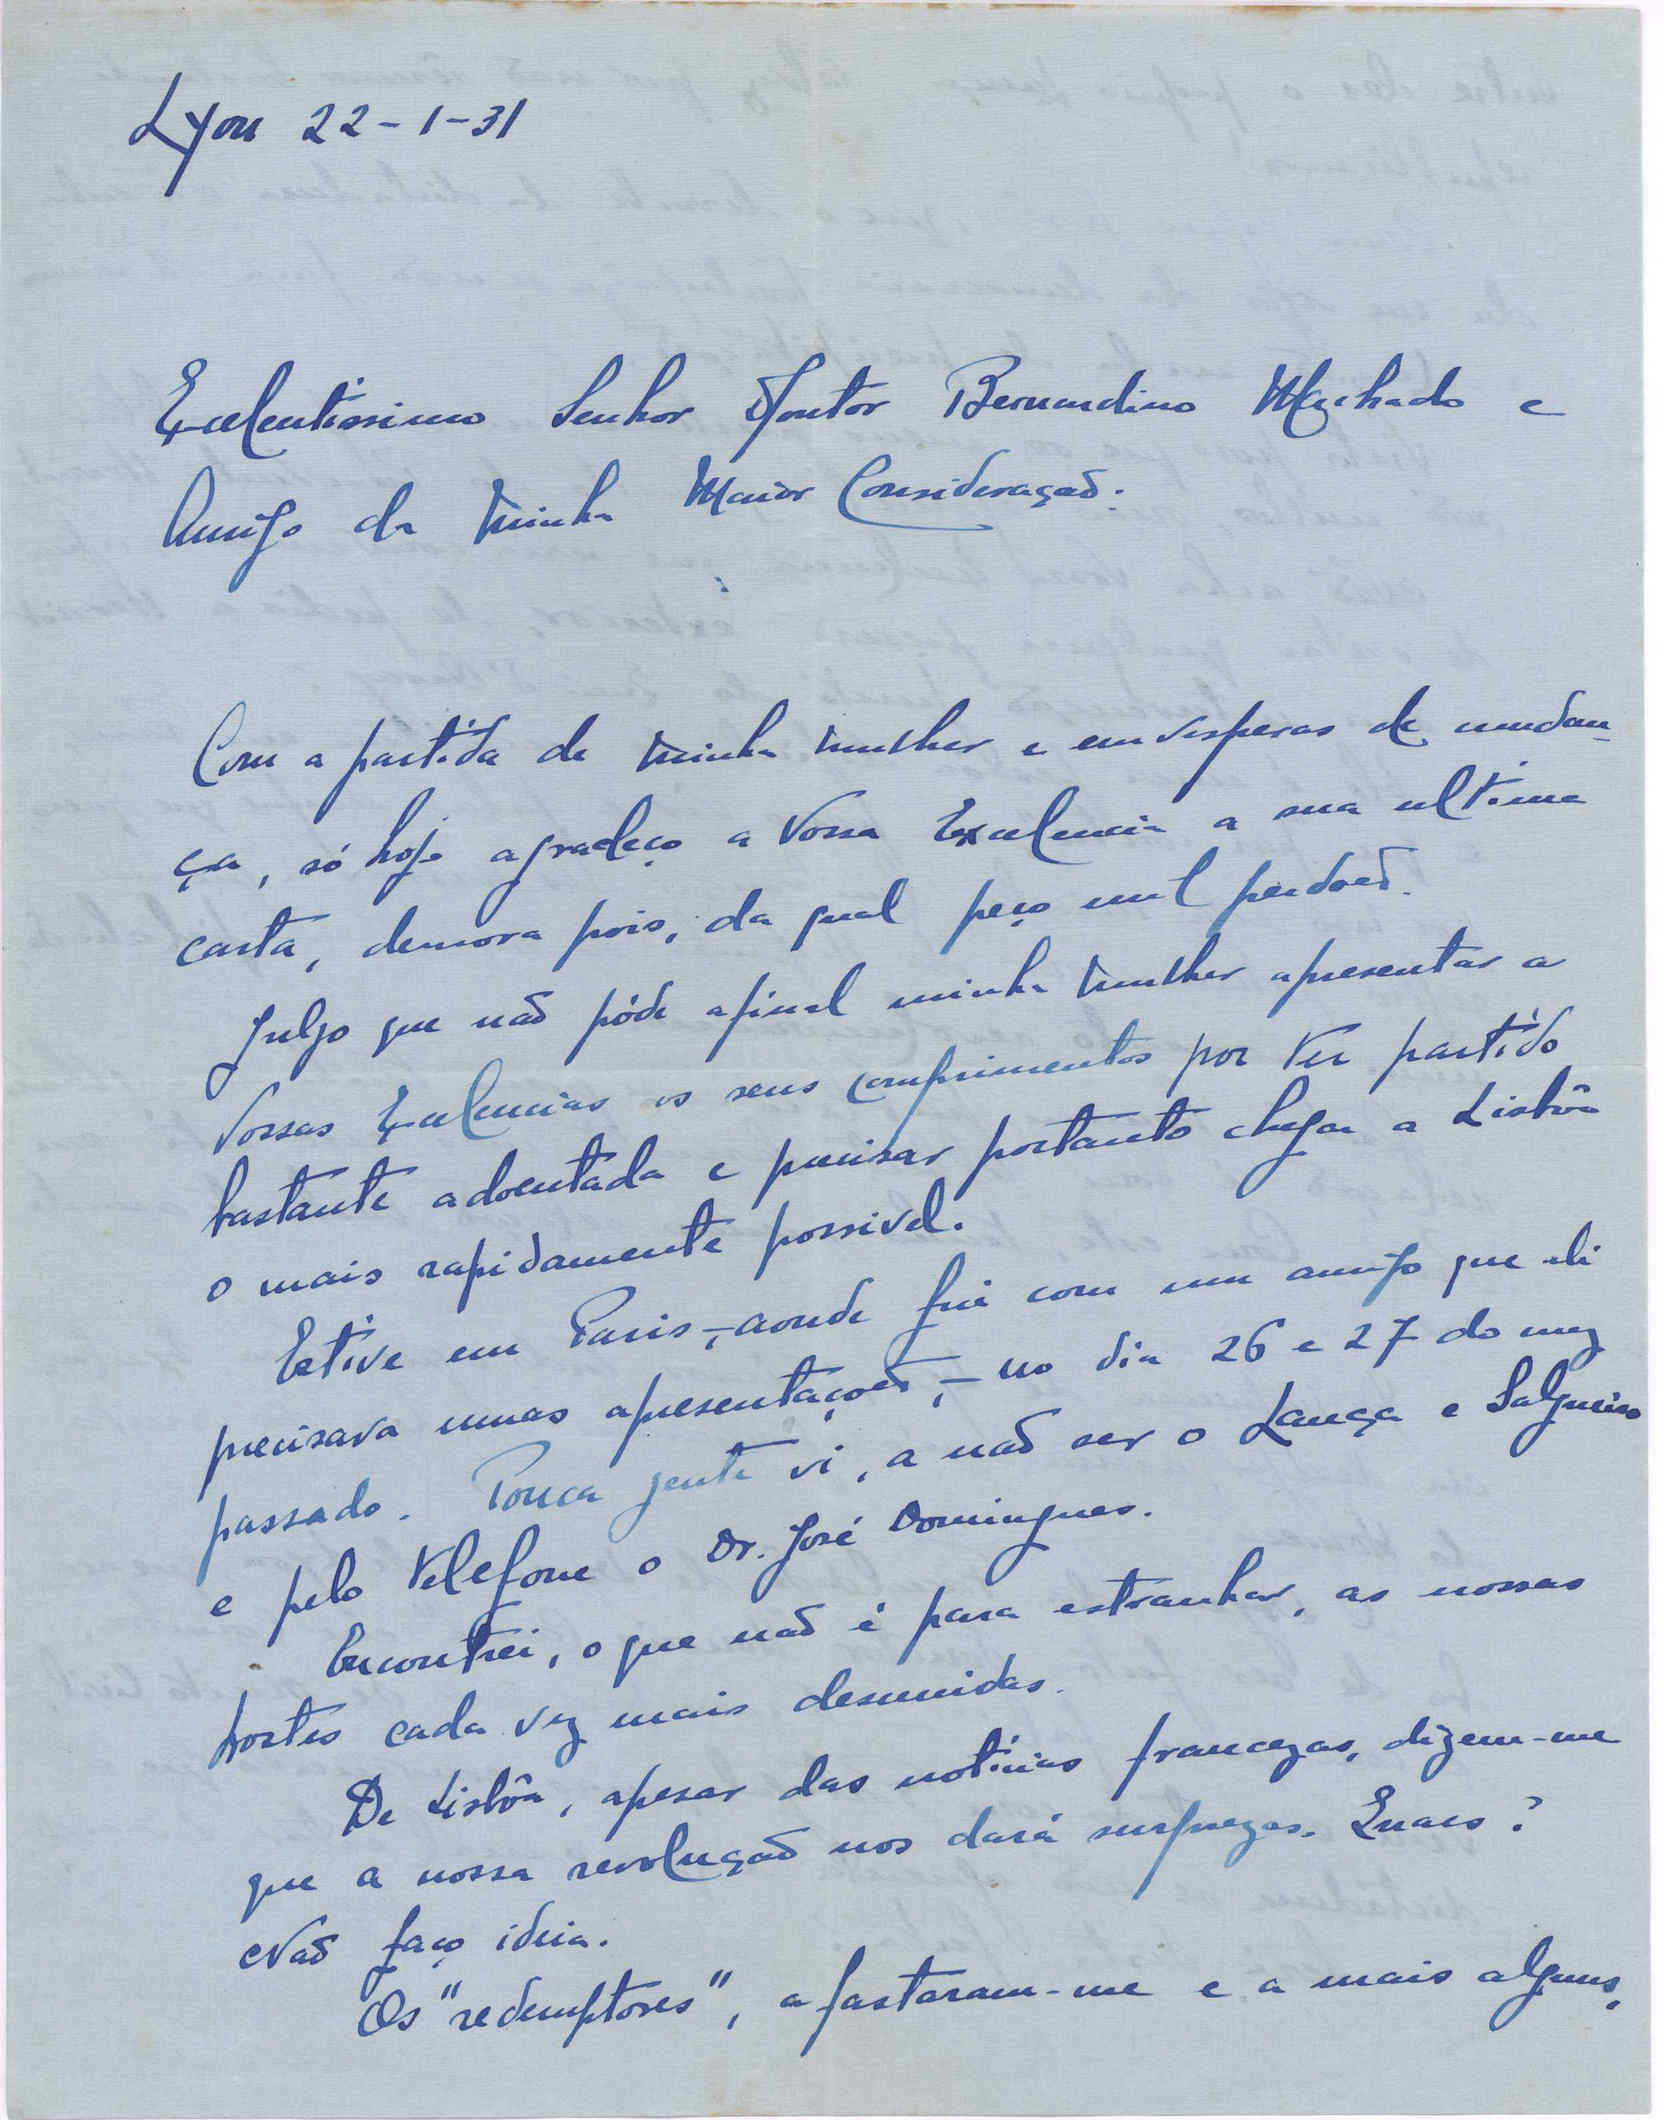 Lyon 22-1-31
Excelentissimo Senhor Doutor Bernardino Machado e
Amigo da Minha Maior Consideração:
Com a partida de minha mulher e em vesperas de mudan-
ça, só hoje agradeço a Vossa Excelencia a sua ultima
carta, demora pois, da qual peço mil perdoẽs.
Julgo que não póde afinal minha mulher apresentar a
Vossas Excelencias os seus comprimentos por ter partido
bastante adoentada e precisar portanto chegar a Lisbôa
o mais rapidamente possivel.
Estive em Paris, - aonde fui com um amigo que ali
precisava umas apresentaçoẽs, - no dia 26 e 27 do mez
passado. Pouca gente vi, a não ser o Lança e Salgueiro
e pelo telefone o Dr. José Domingues.
Encontrei, o que não é para estranhar, as nossas
hostes cada vez mais desunidas.
De Lisbôa, apesar das noticias francezas, dizem-me
que a nossa revolução nos dará surprezas. Quaes?
Não faço ideia.
Os "redemptores", afastaram-me e a mais alguns,